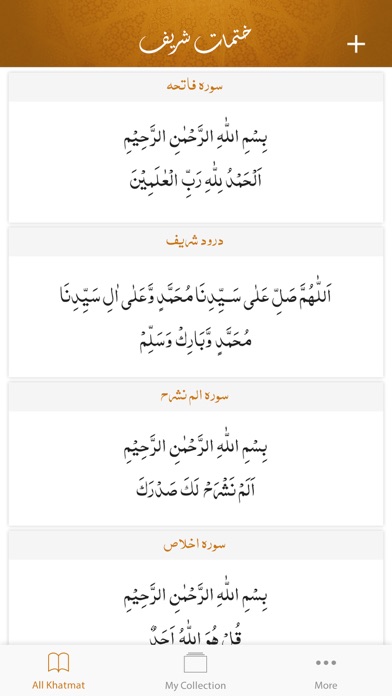 ختمات شریف
+
سورہ فاتحہ
بِسْمِ اللّٰهِ الرَّحْمٰنِ الرَّحِيْمِ
اَلْحَمْدُ لِلّٰهِ رَبِّ الْعٰلَمِيْنَ
درود شریف
اَللّٰهُمَّ صَلِّ عَلٰى سَيِّدِنَا مُحَمَّدٍ وَّعَلٰى اٰلِ سَيِّدِنَا
مُحَمَّدٍ وَّبَارِكْ وَسَلِّمْ
سورہ الم نشرح
بِسْمِ اللّٰهِ الرَّحْمٰنِ الرَّحِيْمِ
اَلَمْ نَشْرَحْ لَكَ صَدْرَكَ
سورہ اخلاص
بِسْمِ اللّٰهِ الرَّحْمٰنِ الرَّحِيْمِ
قُلْ هُوَ اللّٰهُ اَحَدٌ
All Khatmat
My Collection
More